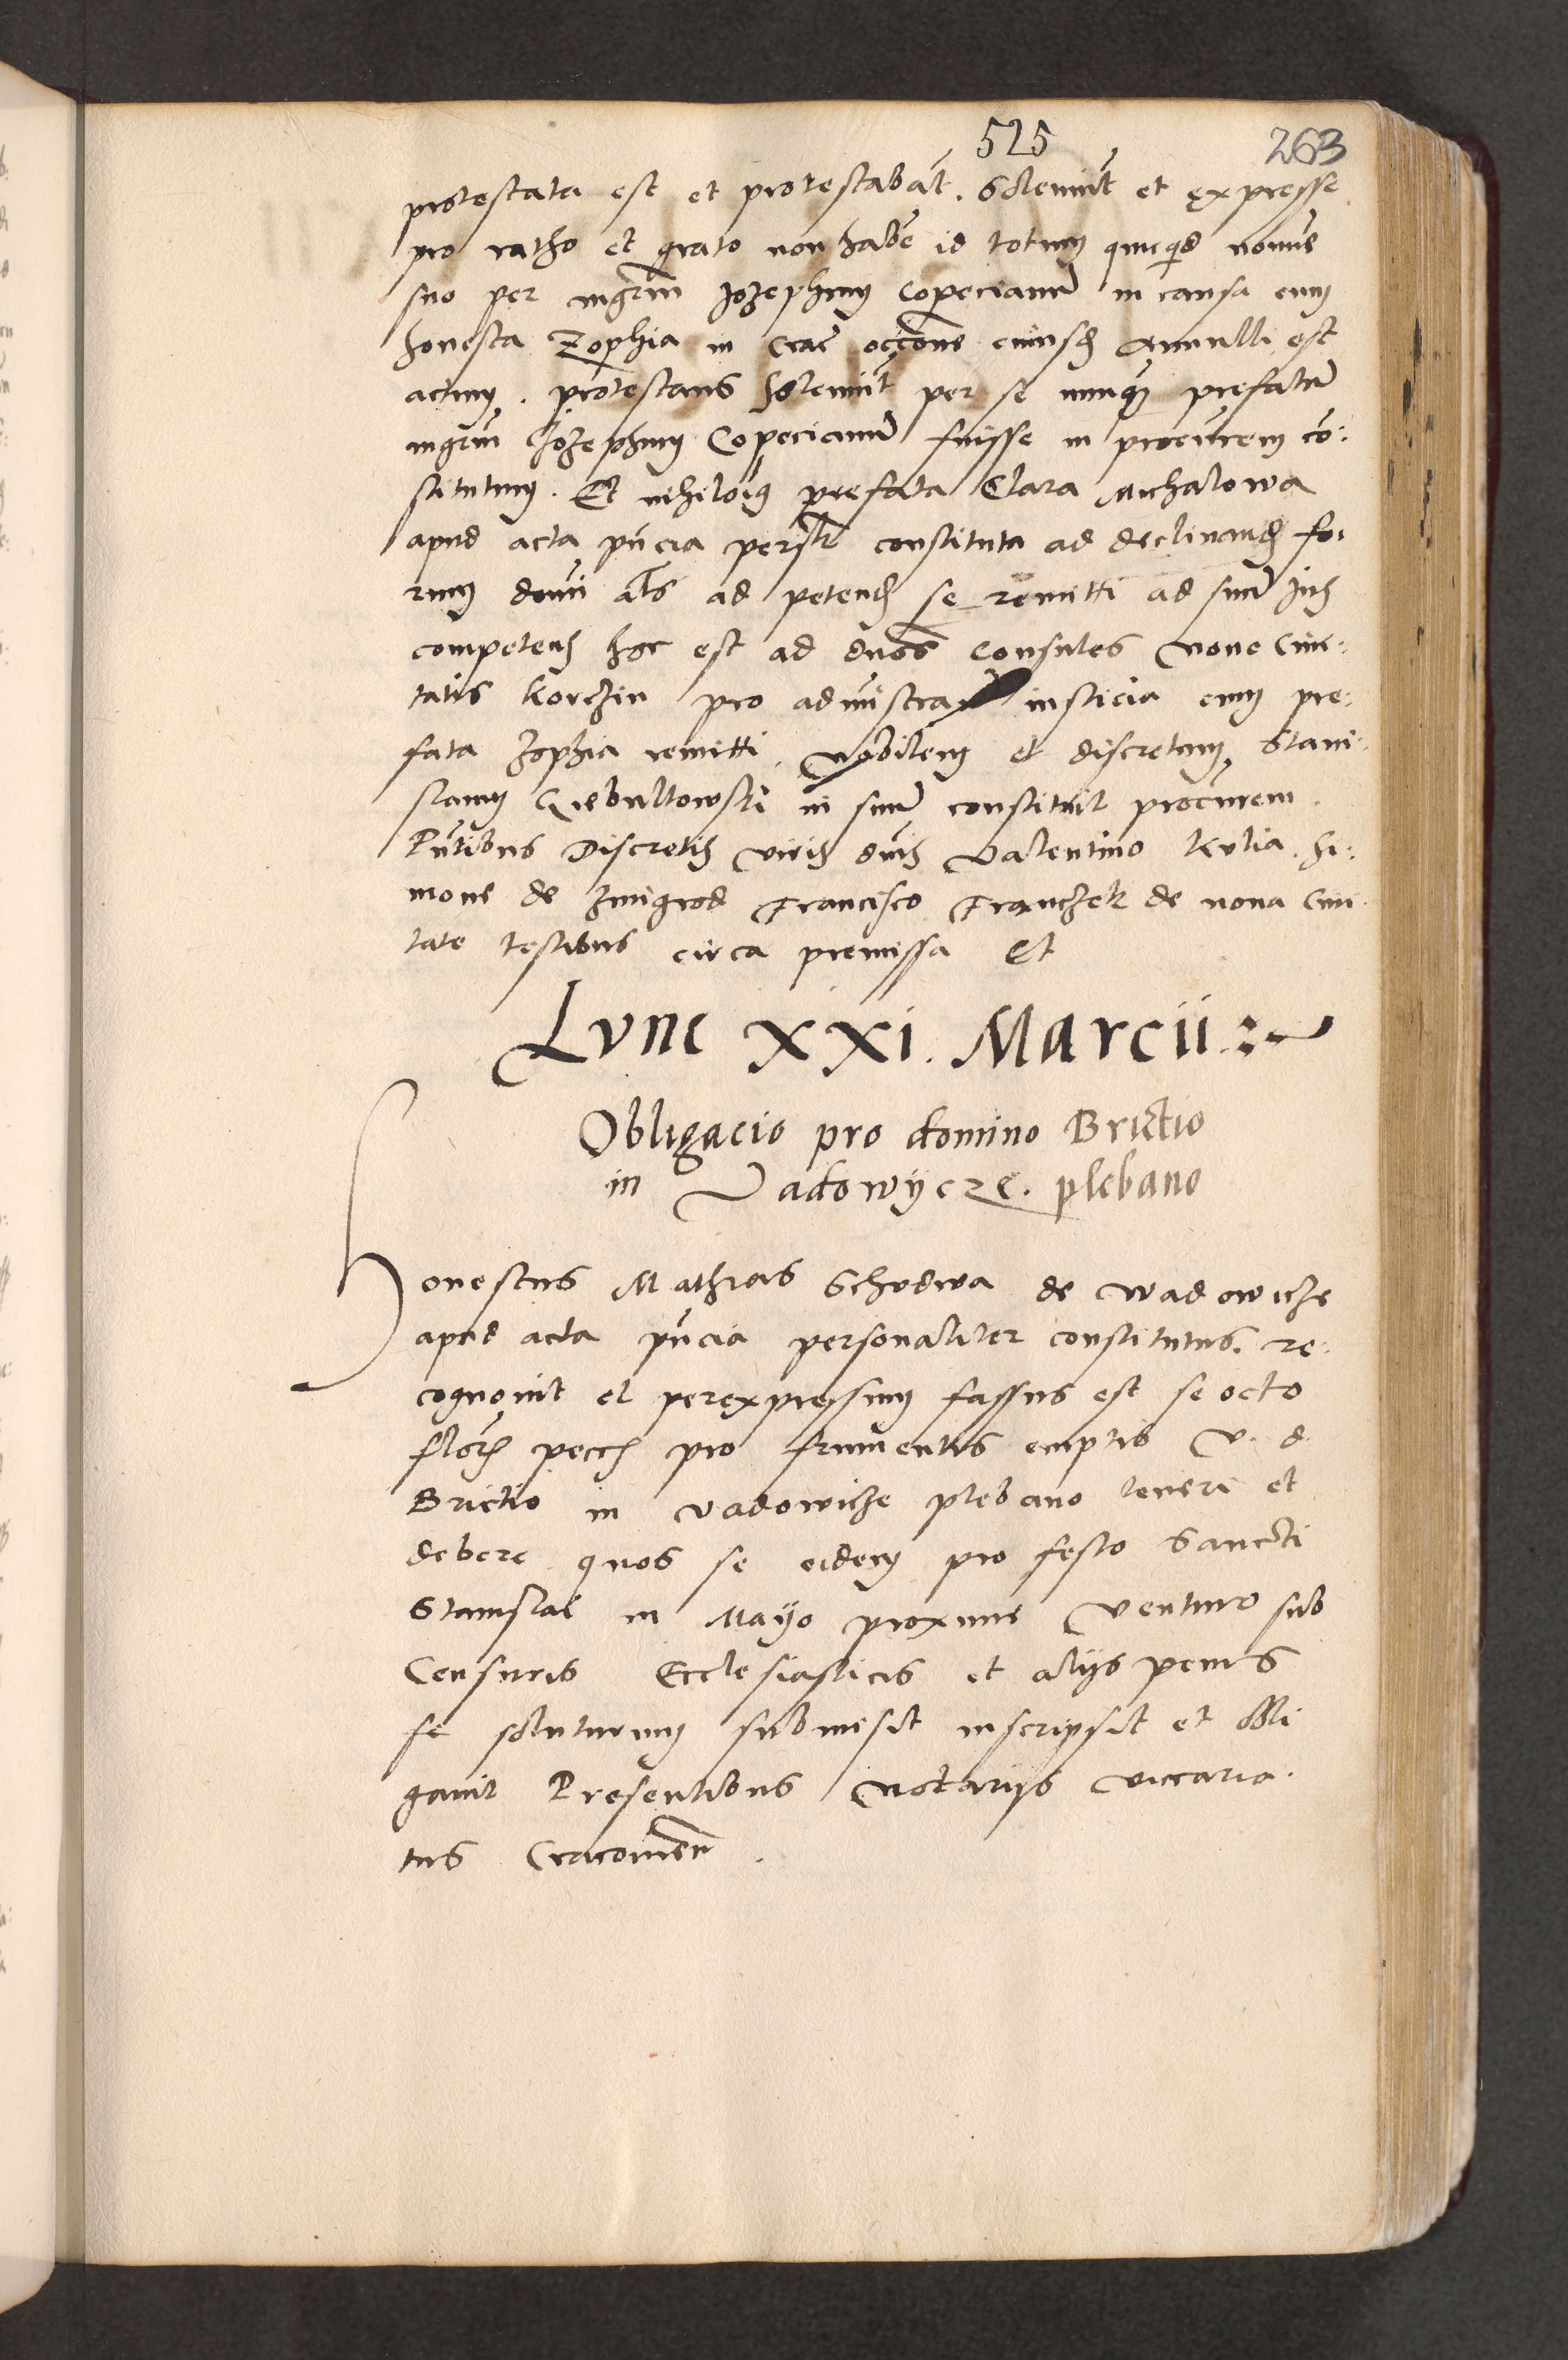 525 263
protestata est et protestabat. Solemnit et expresse
pro ratho et grato non habe id totum quicquid nomine
suo per mgrm Jozephum Copecianu in causa cum
honesta Zophia in Crac occone cuiusd Annulli est
actum. protestans solemnit per se nunquam prefatu
mgrm Jozephum Copecianu fuisse in procurem co:
stitutum. Et nihilomis prefata Clara Michalowa
apud acta pncia personalr constituta ad declinand fo:
rum domi als ad petend se remitti ad suu Jus
competens hoc est ad dnos Consules Nove Civi:
tatis Korchin pro administra iusticia cum pre:
fata Zophia remitti. Nobilem et discretum Stani:
slaum Giebultowski in suu constituit procurem.
Pntibus Discretis viris dnis Valentino Kulia. Si:
mone de Zmigrod Francisco Franczek de nova Civi
tate testibus circa premissa Et
Lune XXI. Marcii
Obligacio pro domino Brictio
in Vadowycze. plebano
Honestus Mathias Schodwa de Wadowicze
apud acta pncia personaliter constitutus. re:
cognovit et per expressum fassus est se octo
floren pecc pro frumentis emptis V. d.
Brictio in Vadowicze plebano teneri et
debere quos se eidem pro festo Sancti
Stanislai in Mayo proxime venturo sub
Censuris Ecclesiasticis et alys penis
se soluturum submisit inscripsit et obli
gavit Presentibus Notarys vicaria
tus Cracovien.